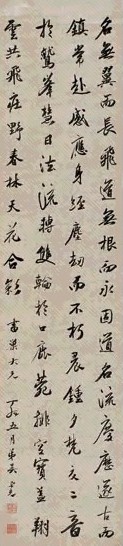 名無翼而長飛道無根而永固道名流慶歷遂古而
鎮常赴感應身經塵劫而不朽晨鍾夕梵交二音
於鷲峯慧日法流轉雙輪於鹿菀排空寶蓋翔
雲共飛莊野春林天花合彩
大兄
五月弟吳